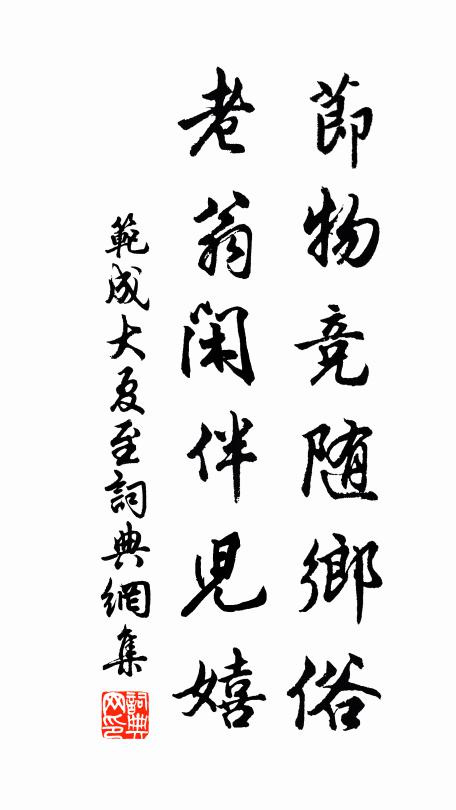 節物竞随鄉俗
老翁閑伴兒嬉
範成大夏至詞典網集
詞典网印